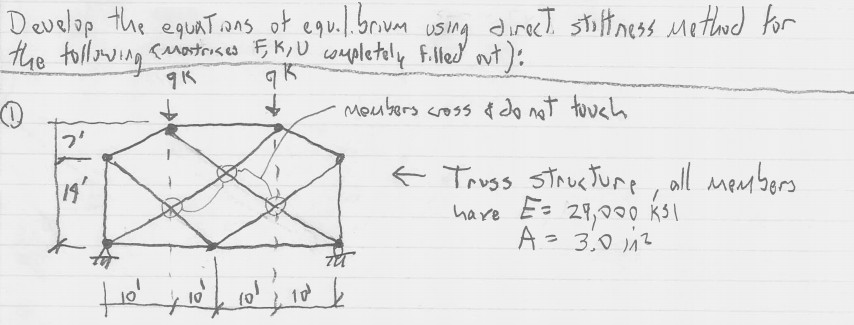 Develop the equations of equilibrium using direct stiffness method for
the following (matrices F, K, U completely filled out):
9K 9K
① members cross & do not touch
7'
14'
← Truss structure, all members
have E = 29,000 ksi
A = 3.0 in²
10' 10' 10' 10'